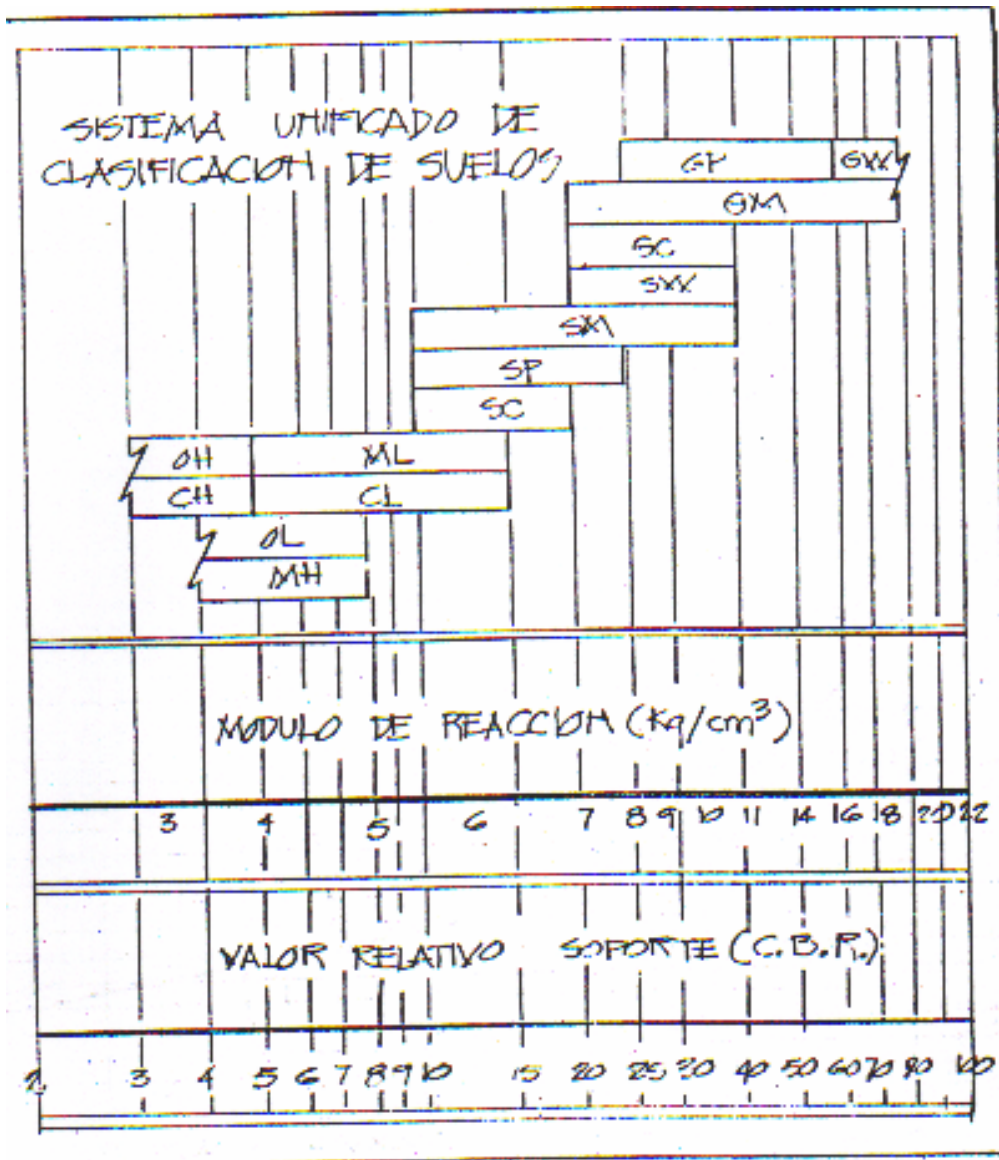 SISTEMA UNIFICADO DE
CLASIFICACION DE SUELOS
GP GW
GM
SC
SW
SM
SP
SC
OH ML
CH CL
OL
MH
MODULO DE REACCION (Kg/cm³)
3 4 5 6 7 8 9 10 11 14 16 18 20 22
VALOR RELATIVO SOPORTE (C.B.R.)
2 3 4 5 6 7 8 9 10 15 20 25 30 40 50 60 70 80 100